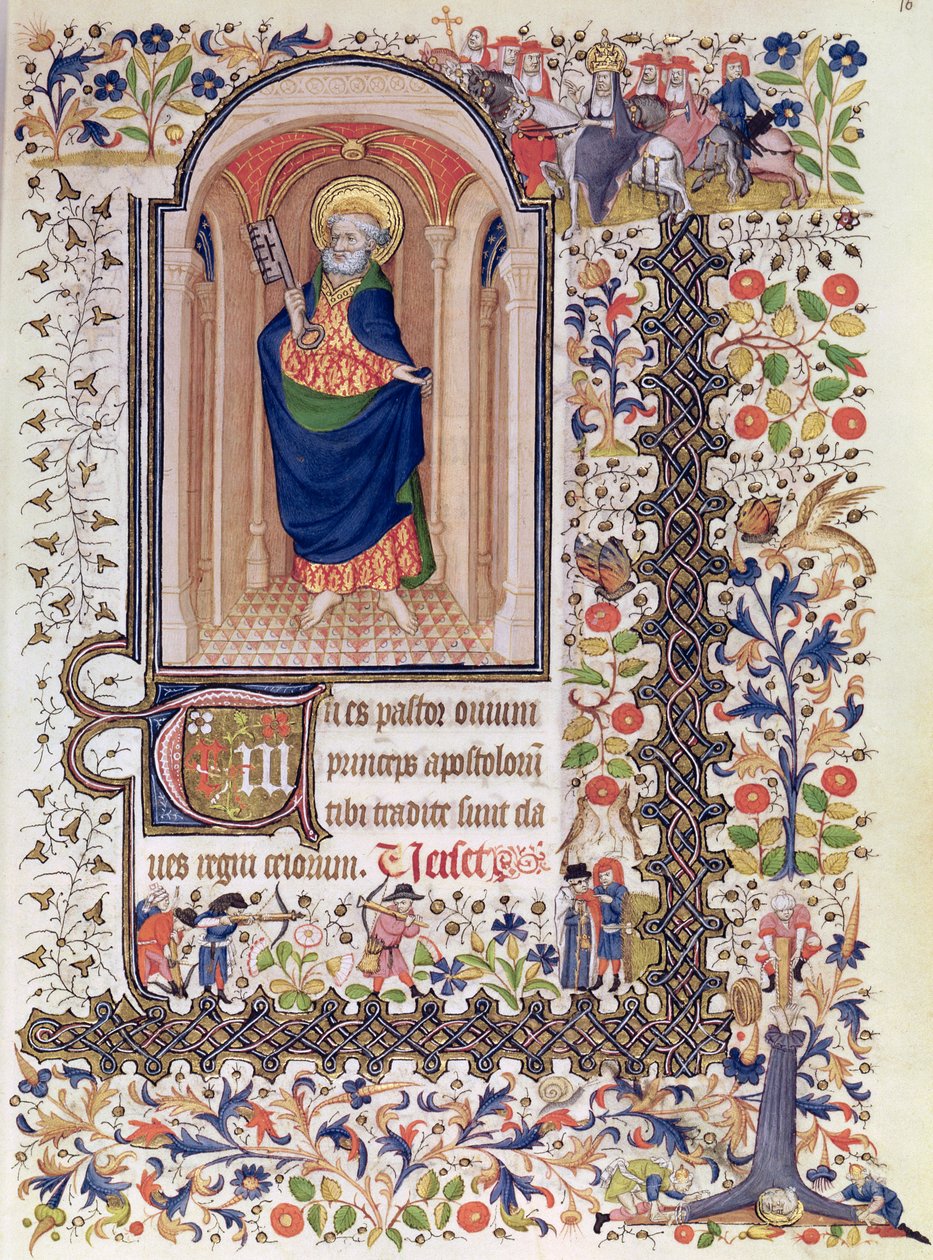 16
Tu es pastor ovium
princeps apostolorū
tibi tradite sunt cla
ues regni celorum. Verset